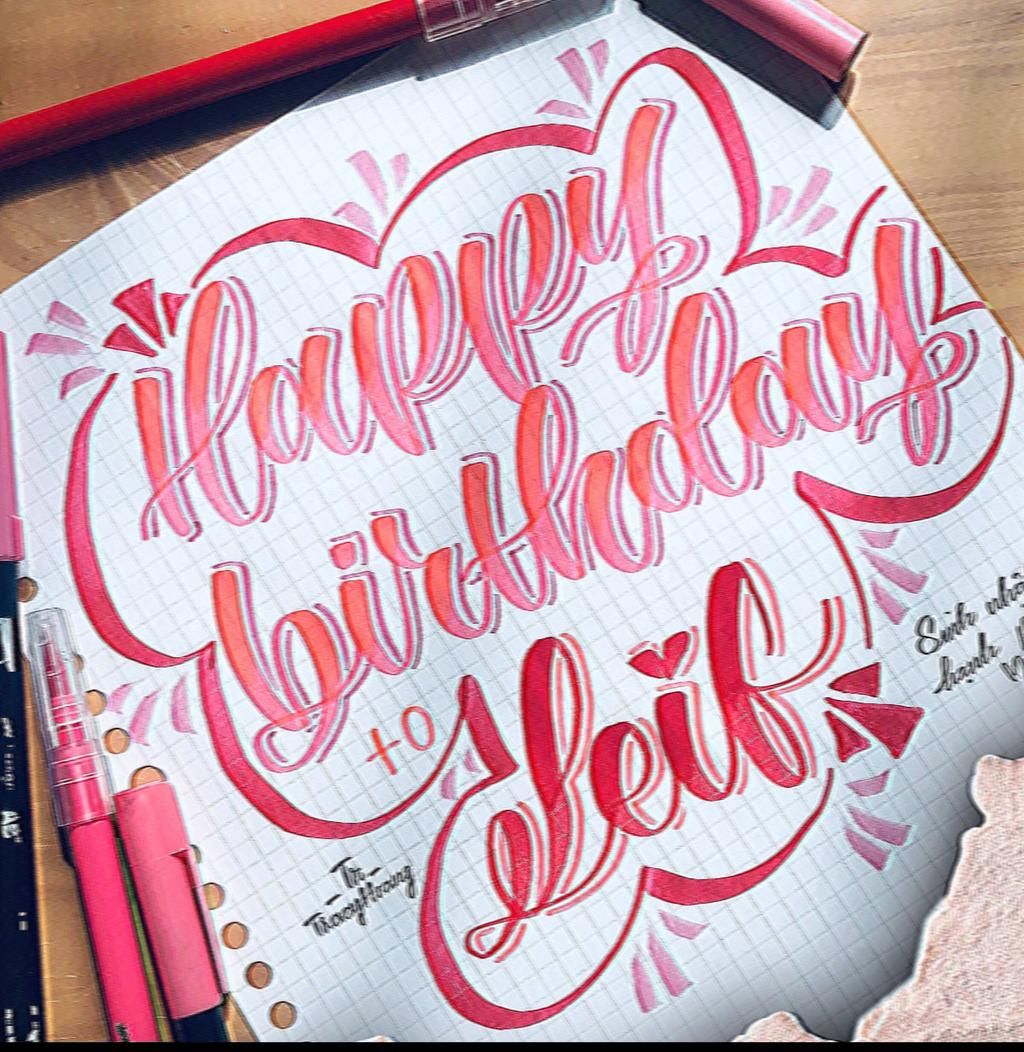 Happy
birthday
to
Leif
Sinh nhậ
hạnh
Từ
TracyHoang